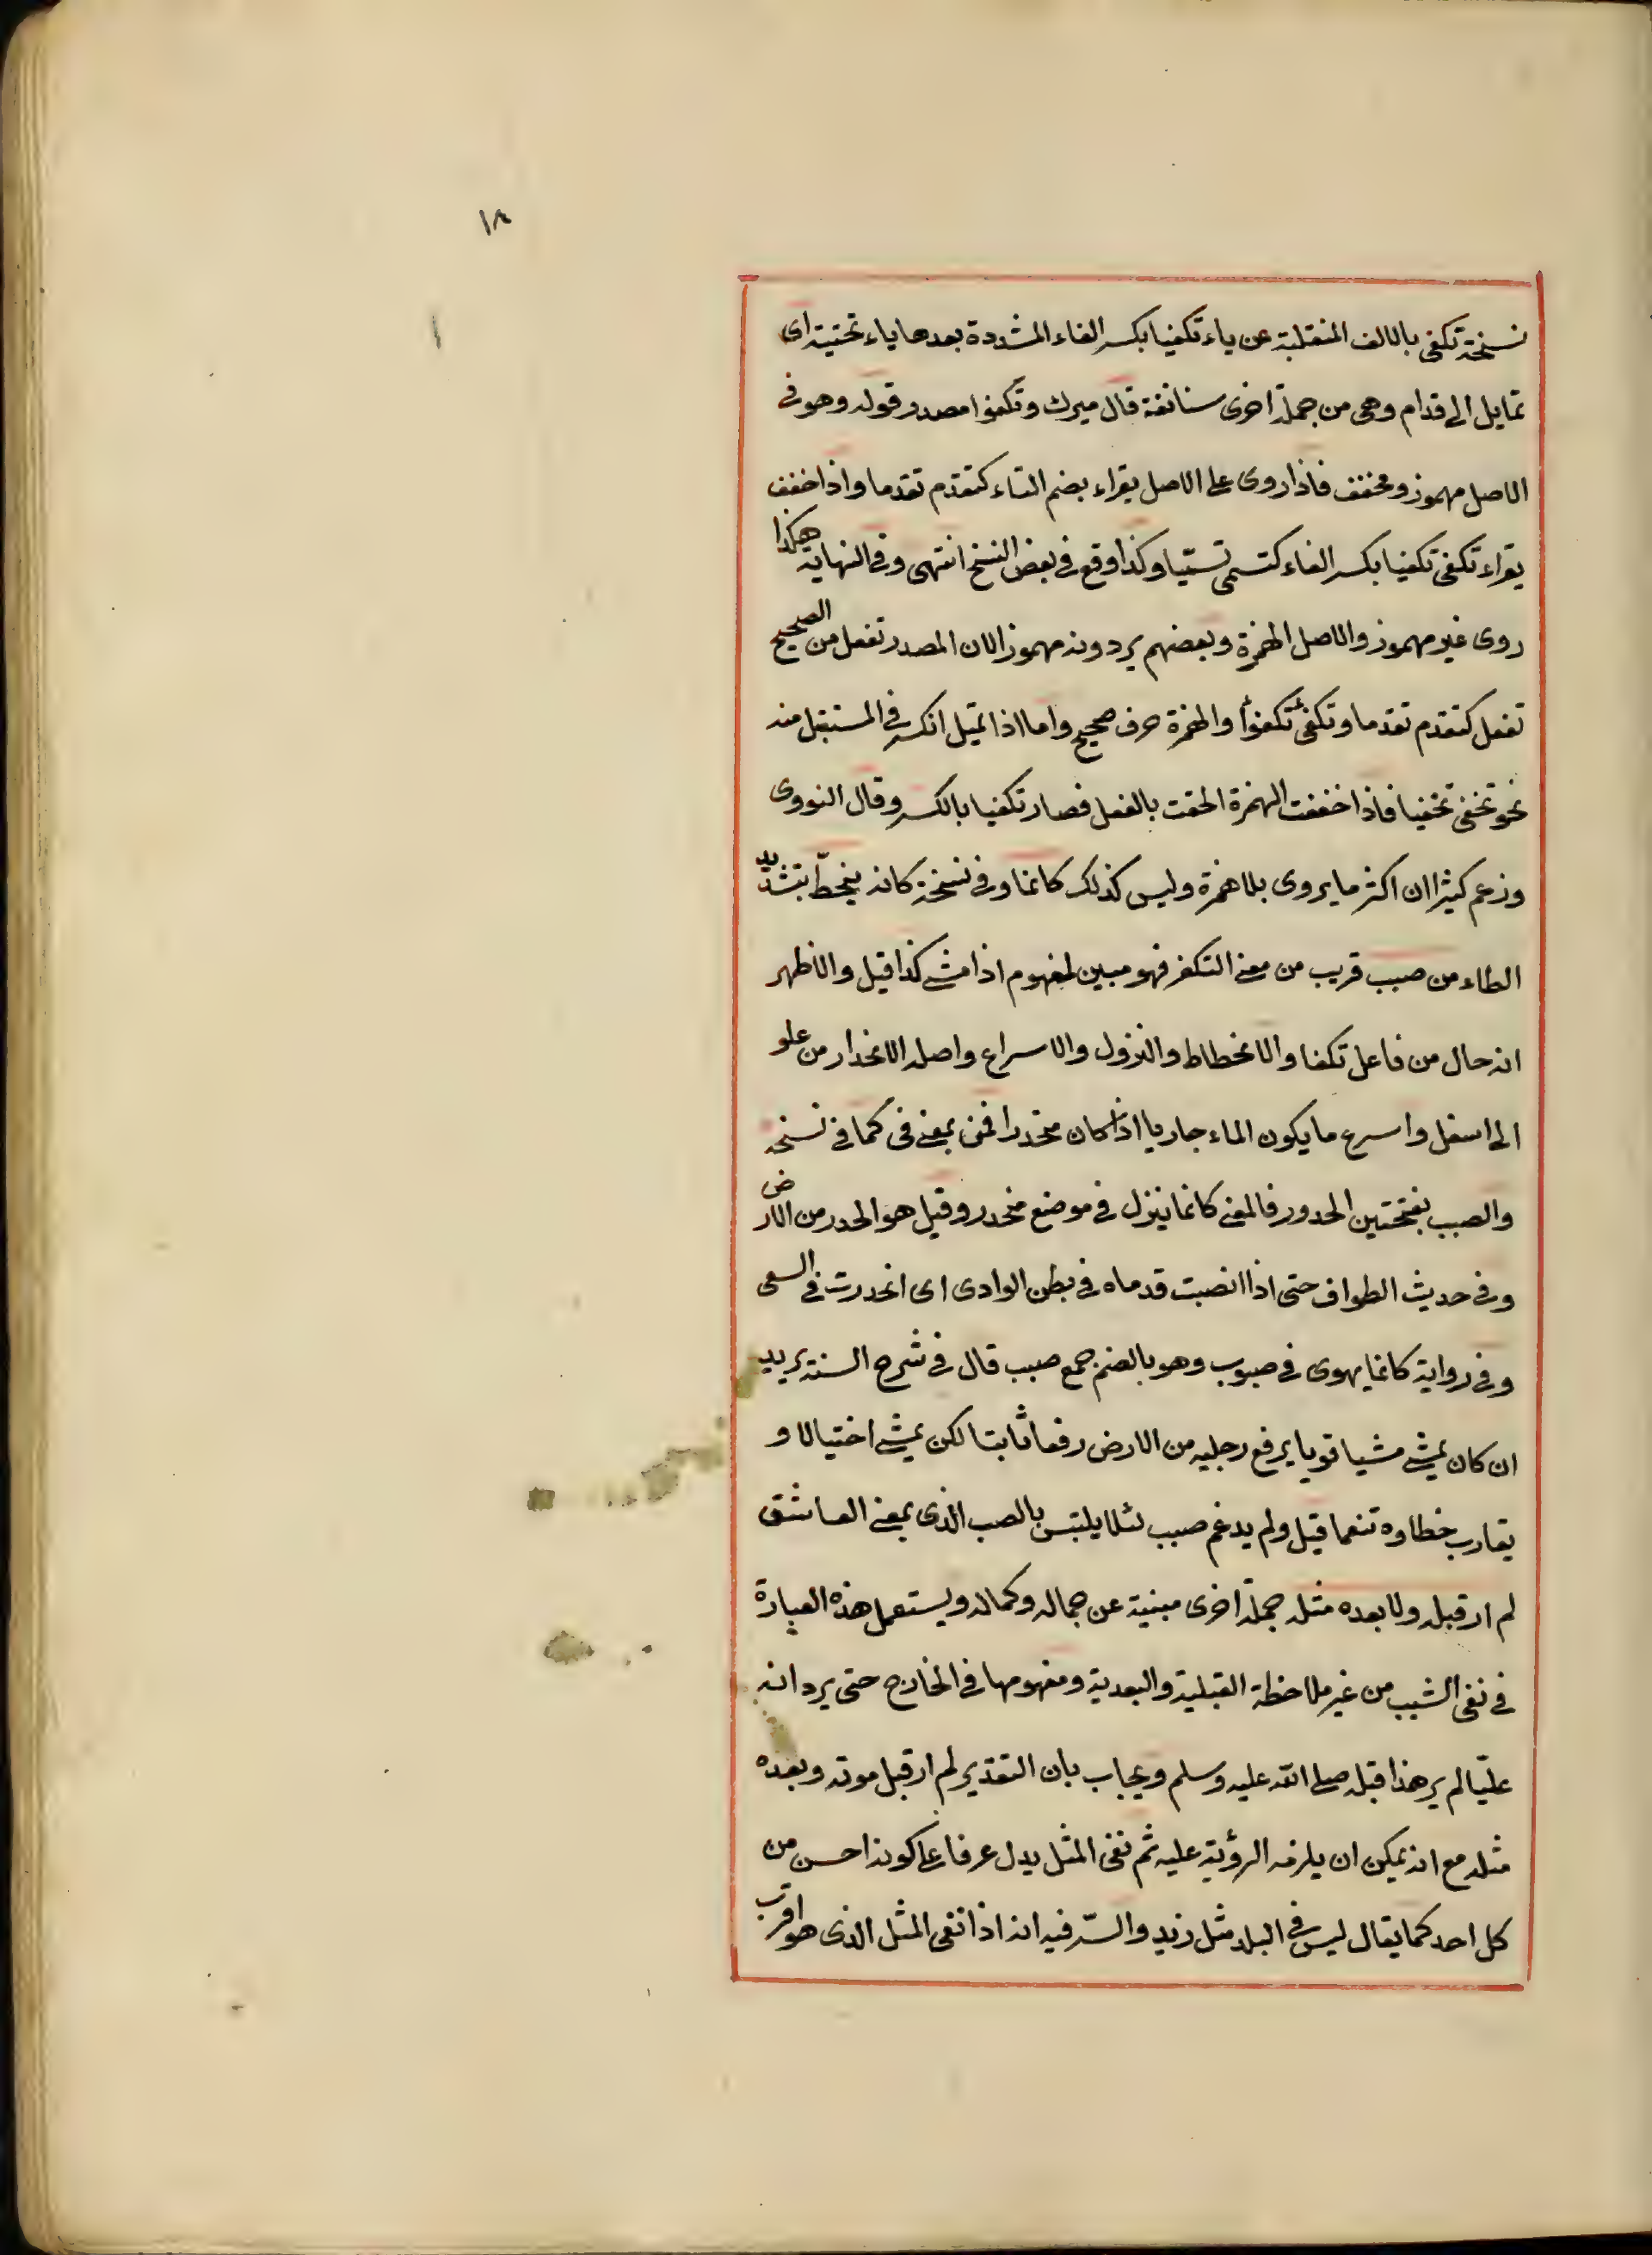 ١٨
نسخة تكفى بالالف المنقلبة عن ياء تكفيا بكسر الفاء المشددة بعدها ياء تحتية اى
تمايل الى قدام وهى من جملة اخرى ستانفة قال ميرك وتكفوا مصدر وقوله وهو فى
الاصل مهموز ومخفف فاذا روى على الاصل يقراء بضم التاء كتقدم تقدما واذا خفف
يقراء تكفى تكفيا بكسر الفاء كتسمى تسميا وكذا وقع فى بعض النسخ انتهى وفى النهاية هكذا
روى غير مهموز والاصل الهمزة وبعضهم يردونه مهموز الان المصدر تفعل من الصحيح
تفعل كتقدم تقدما وتكفئ تكفوأ والهمزة حرف صحيح واما اذا تميل انكسر فى المستقبل منه
نحو تخفى تخفيا فاذا خففت الهمزة الحقت بالفعل فصار تكفيا بالكسر وقال النووى
وزعم كيثرا ان اكثر ما يروى بلا همزة وليس كذلك كانما وفى نسخة كانه ينحطّ بتشديد
الطاء من صبب قريب من معنى التكفر فهو مبين لمفهوم اذا مشى كذا قيل والاظهر
انه حال من فاعل تكفا والانحطاط والنزول والاسراع واصله الانحدار من علو
الى اسفل واسرع ما يكون الماء جاريا اذا كان منحدرا فمن بمعنى فى كما فى نسخة
والصبب بفتحتين الحدور فالمعنى كانما ينزل فى موضع منحدر وقيل هو الحدر من الارض
وفى حديث الطواف حتى اذا انصبت قدماه فى بطن الوادى اى انحدرت فى السعى
وفى رواية كانما يهوى فى صبوب وهو بالضم جمع صبب قال فى شرح السنة يريد
ان كان يمشى مشيا قويا يرفع رجليه من الارض رفعا ثابتا لكن يمشى اختيالا و
يقارب خطاوه تنعما قيل ولم يدغم صبب لئلا يلتبس بالصب الذى بمعنى العاشق
لم ار قبله ولا بعده مثله جملة اخرى مبنية عن جماله وكماله ويستعمل هذه العبارة
فى نفى الشبب من غير ملاحظة القبلية والبعدية ومفهومها فى الخارج حتى يرد انه
عليّا لم ير هذا قبله صلى الله عليه وسلم ويجاب بان التقدير لم ار قبل موته وبعده
مثله مع انه يمكن ان يلزمه الرؤية عليه ثم نفى المثل يدل عرفا على كونه احسن من
كل احد كما يقال ليس فى البلد مثل زيد والسّر فيه انه اذا نفى المثل الذى هو اقرب